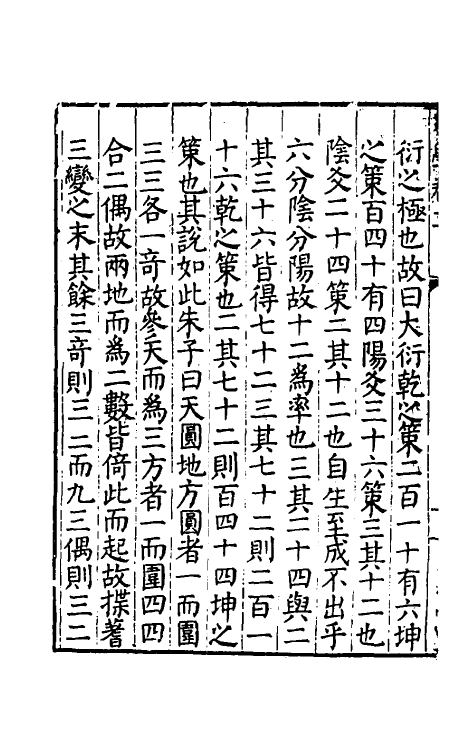 衍之極也故曰大衍乾之策二百一十有六坤
之策百四十有四陽爻三十六策三其十二也
陰爻二十四策二其十二也自生至成不出乎
六分陰分陽故十二為率也三其二十四與二
其三十六皆得七十二三其七十二則二百一
十六乾之策也二其七十二則百四十四坤之
策也其說如此朱子曰天圓地方圓者一而圍
三三各一奇故參天而為三方者一而圍四四
合二偶故兩地而為二數皆倚此而起故揲蓍
三變之末其餘三奇則三三而九三偶則三二